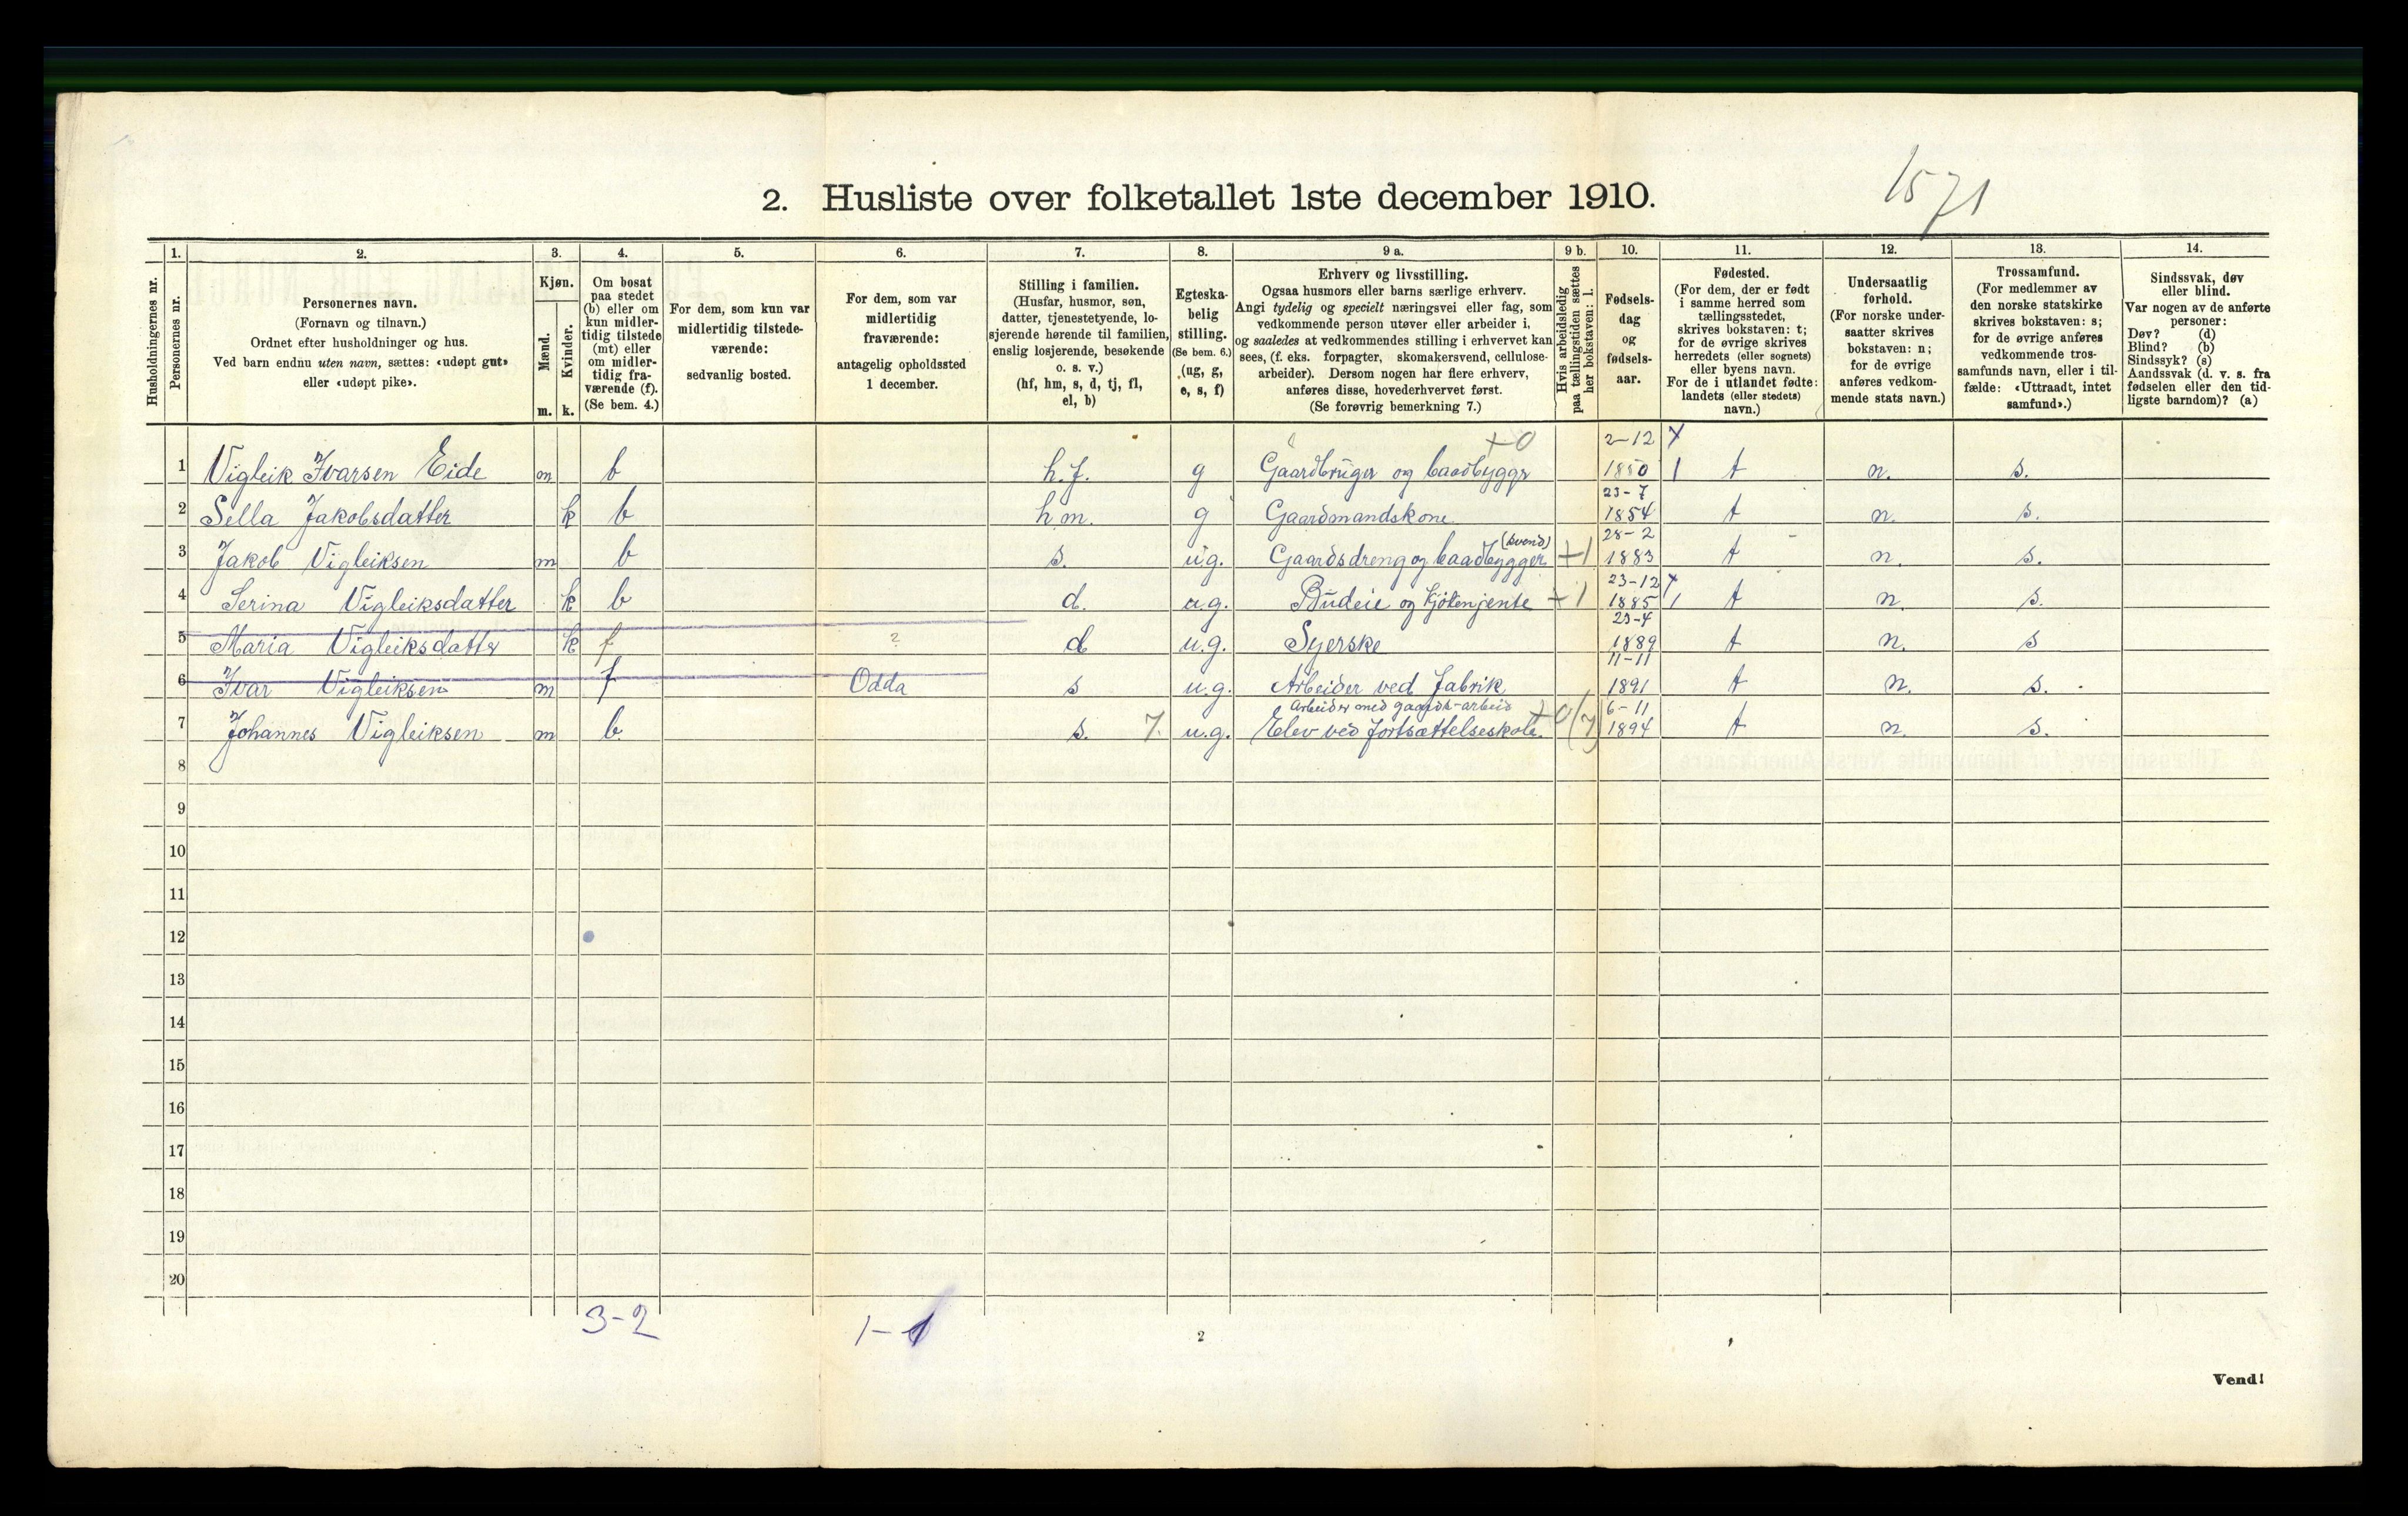 1571
2. Husliste over folketallet 1ste december 1910.
Husholdningernes nr.
1. Personernes nr.
2. Personernes navn.
(Fornavn og tilnavn.)
Ordnet efter husholdninger og hus.
Ved barn endnu uten navn, sættes: «udøpt gut»
eller «udøpt pike».
3. Kjøn.
Mænd. m.
Kvinder. k.
4. Om bosat
paa stedet
(b) eller om
kun midler-
tidig tilstede
(mt) eller
om midler-
tidig fra-
værende (f).
(Se bem. 4.)
5. For dem, som kun var
midlertidig tilstede-
værende:
sedvanlig bosted.
6. For dem, som var
midlertidig
fraværende:
antagelig opholdssted
1 december.
7. Stilling i familien.
(Husfar, husmor, søn,
datter, tjenestetyende, lo-
sjerende hørende til familien,
enslig losjerende, besøkende
o. s. v.)
(hf, hm, s, d, tj, fl,
el, b)
8. Egteska-
belig
stilling.
(Se bem. 6.)
(ug, g,
e, s, f)
9 a. Erhverv og livsstilling.
Ogsaa husmors eller barns særlige erhverv.
Angi tydelig og specielt næringsvei eller fag, som
vedkommende person utøver eller arbeider i,
og saaledes at vedkommendes stilling i erhvervet kan
sees, (f. eks. forpagter, skomakersvend, cellulose-
arbeider). Dersom nogen har flere erhverv,
anføres disse, hovederhvervet først.
(Se forøvrig bemerkning 7.)
9 b. Hvis arbeidsledig
paa tællingstiden sættes
her bokstaven: l.
10. Fødsels-
dag
og
fødsels-
aar.
11. Fødested.
(For dem, der er født
i samme herred som
tællingsstedet,
skrives bokstaven: t;
for de øvrige skrives
herredets (eller sognets)
eller byens navn.
For de i utlandet fødte:
landets (eller stedets)
navn.)
12. Undersaatlig
forhold.
(For norske under-
saatter skrives
bokstaven: n;
for de øvrige
anføres vedkom-
mende stats navn.)
13. Trossamfund.
(For medlemmer av
den norske statskirke
skrives bokstaven: s;
for de øvrige anføres
vedkommende tros-
samfunds navn, eller i til-
fælde: «Uttraadt, intet
samfund».)
14. Sindssvak, døv
eller blind.
Var nogen av de anførte
personer:
Døv? (d)
Blind? (b)
Sindssyk? (s)
Aandssvak (d. v. s. fra
fødselen eller den tid-
ligste barndom)? (a)
+0 2-12 x
1 Vigleik Ivarsen Eide m b h.f. g Gaardbruger og baadbyggr 1850 1 t n. s.
23-7
2 Sella Jakobsdatter k b h m. g Gaardmandskone 1854 t n. s.
(svend) 28-2
3 Jakob Vigleiksen m b s. u.g. Gaardsdreng og baadbygger +1 1883 t n. s.
23-12 x
4 Serina Vigleiksdatter k b d. u.g. Budeie og kjökenjente +1 1885 1 t n. s.
23-4
5 Maria Vigleiksdattr k f ? d u.g. Syerske 1889 t n. s
11-11
6 Ivar Vigleiksen m f Odda s u.g. Arbeider ved fabrik 1891 t n. s.
Arbeider med gaards-arbeid +0 6-11
7 Johannes Vigleiksen m b. s. 7. u.g. Elev ved fortsættelseskole. (7) 1894 t n. s.
8
9
10
11
12
13
14
15
16
17
18
19
20
3-2 1-1
2
Vend!